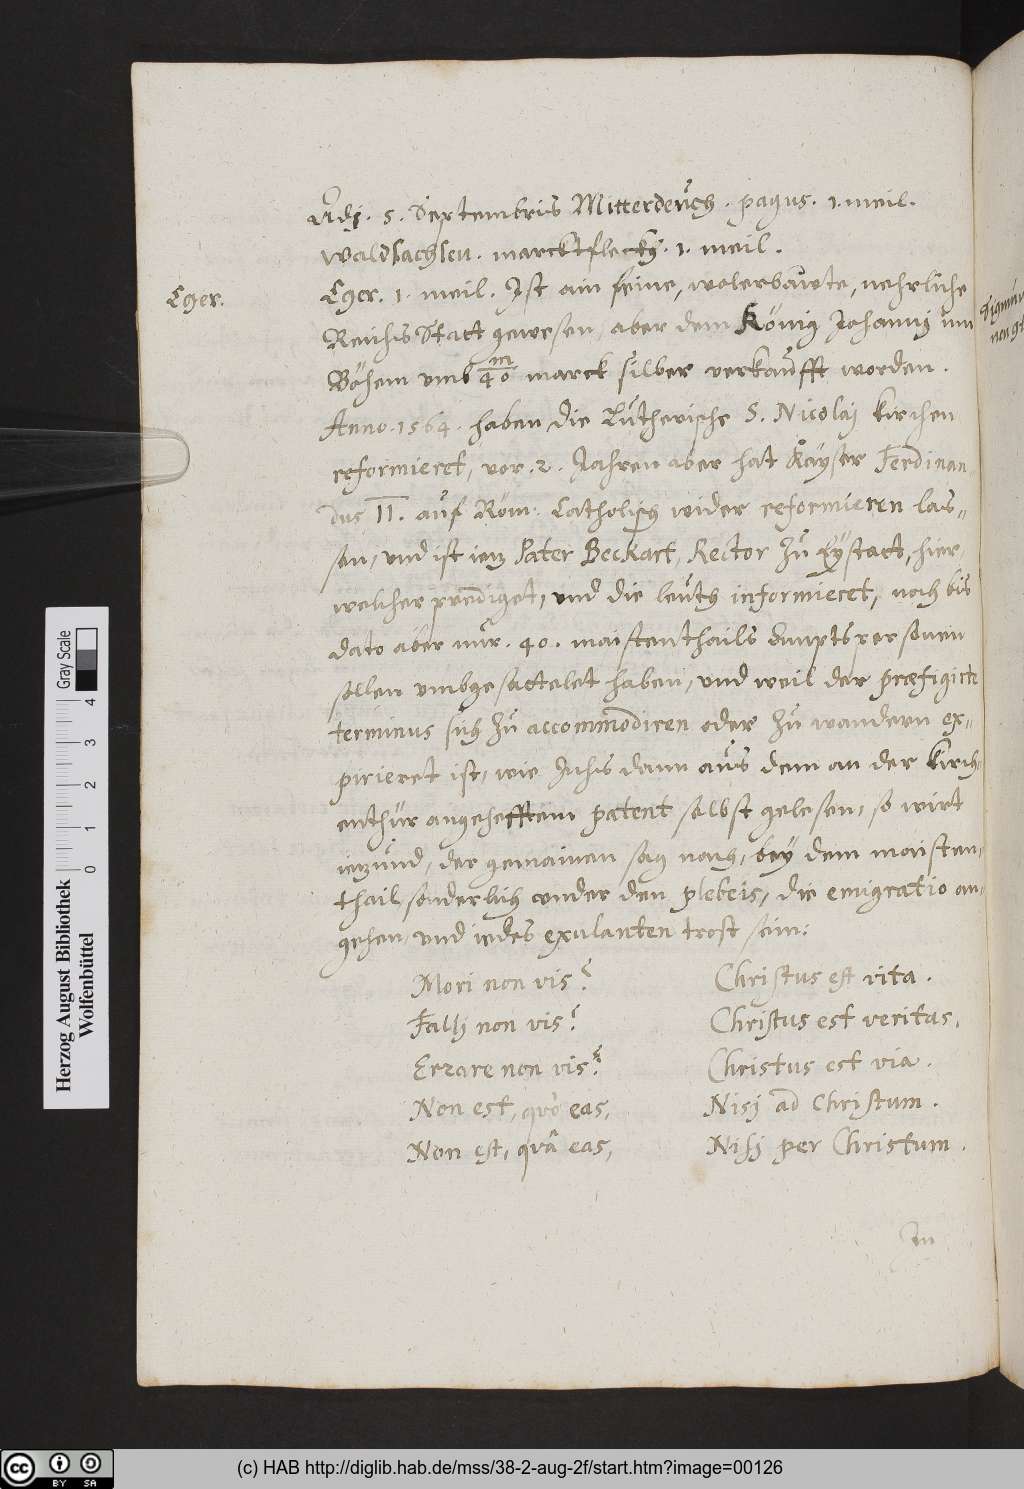 Adj. 5. Septembris Mitterdeuch. pagus. 1. meil.
Waldsachsen. marcktflecky. 1. meil.
Eger.
Eger. 1. meil. Ist ain feine, wolerbawte, nehrliche
Reichs Statt gewesen, aber dem König Johannj inn
Böhem umb 40 m marck silber verkaufft worden.
Anno. 1564. haben die Lutherische S. Nicolaj kirchen
reformieret, vor. 2. Jahren aber hat Kayser Ferdinan
dus II. auf Röm: Catholisch wider reformieren las-
sen, und ist iez Pater Beckart, Rector zu Eystatt, hier,
welcher prediget, und die leuth informieret, noch bis
dato aber nur. 40. maistenthails Amptspersonen
sollen umbgesattelet haben, und weil der præfigirte
terminus sich zu accommodiren oder zu wandern ex-
pirieret ist, wie Ichs dann aus dem an der kirch-
enthür angehefftem patent selbst gelesen, so wirt
iezund, der gemainen sag nach, bey dem maisten-
thail, sonderlich under den plebeis, die emigratio an-
gehen, und iedes exulanten trost sein:
Mori non vis? Christus est vita.
Fallj non vis? Christus est veritas.
Errare non vis? Christus est via.
Non est, quò eas, Nisj ad Christum.
Non est, quâ eas, Nisj per Christum.
In
Herzog August Bibliothek
Wolfenbüttel
0 1 2 3 4
Gray Scale
CC BY SA
(c) HAB http://diglib.hab.de/mss/38-2-aug-2f/start.htm?image=00126